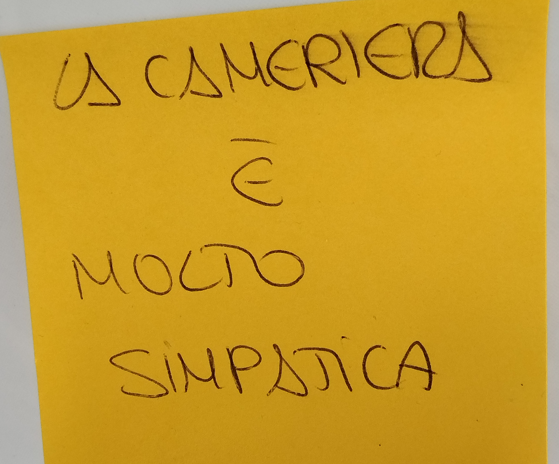 LA CAMERIERA
È
MOLTO
SIMPATICA